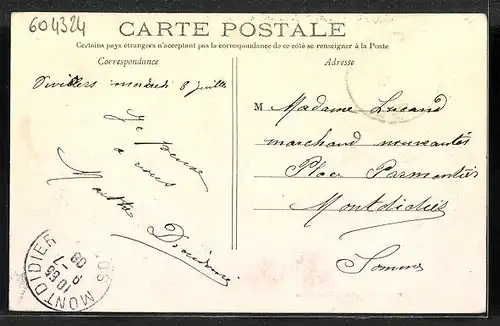 604324
CARTE POSTALE
Certains pays étrangers n'acceptant pas la correspondance de ce côté se renseigner à la Poste
Correspondance
Adresse
mercredi 8 juillet
Je pense
à vous
Marthe
M Madame Lucand
marchand nouveautés
Place Parmentier
Montdidier
Somme
MONTDIDIER
10 55
9 -7
08